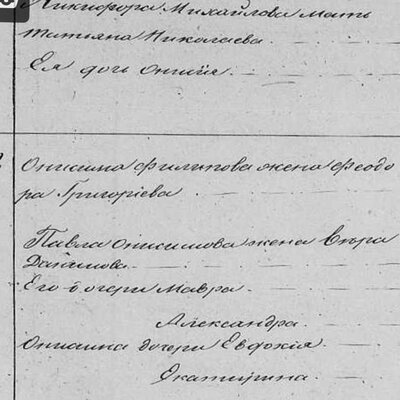 Никифора Михайлова мать
Татьяна Николаева.
Ея дочь Онисія.
Онисима Филипова жена Феодо
ра Григоріева
Павла Онисимова жена Вѣра
Даніилова
Его дочери Мавра.
Александра.
Онисима дочери Евдокія.
Екатерина.